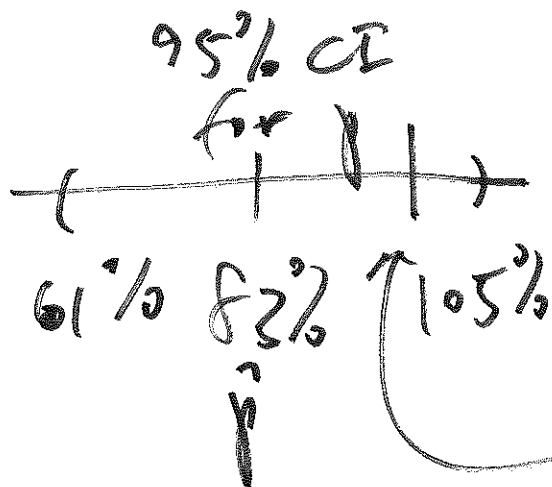 95% CI
for p
61% 83% 105%
p̂